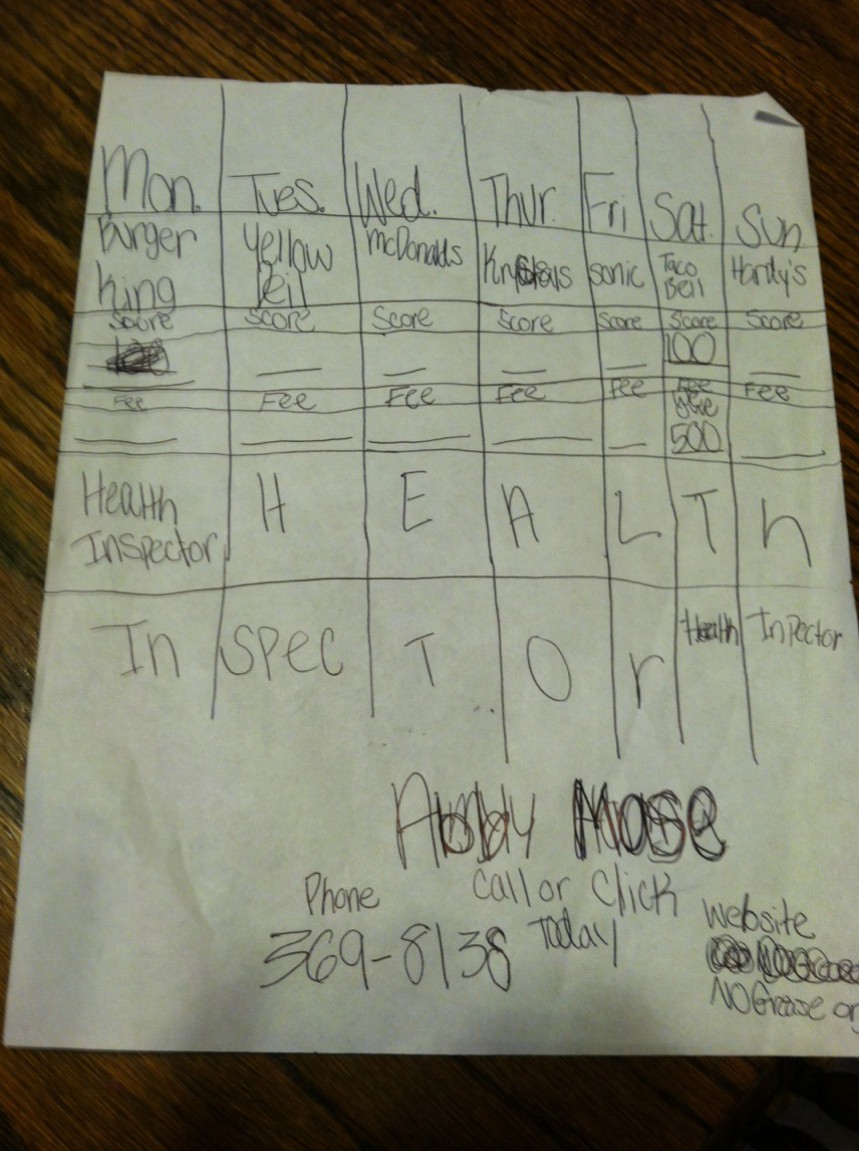 Mon. Tues. Wed. Thur. Fri Sat. Sun
Burger King Yellow Beil McDonalds Krystays sonic Taco Bell Hardy's
Score Score Score Score Score Score Score
100
Fee Fee Fee Fee Fee Fee Fee
500
Health Inspector H E A L T h
In Spec T O r Health Inpector
Abby Mose
Phone Call or Click Today
369-8138
Website
NOGrease or